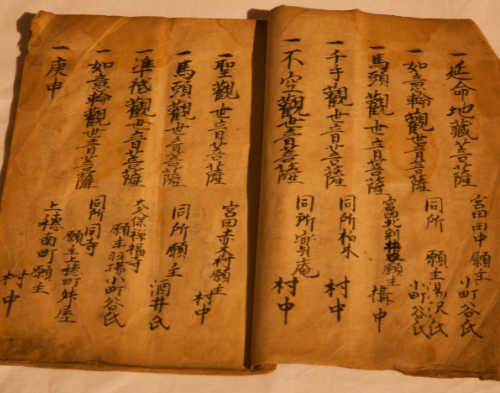 一延命地藏菩薩 宮田田中 願主 小町谷氏
一如意輪觀世音菩薩 同所 願主 湯沢氏 小町谷氏
一馬頭觀世音菩薩 願主 中
一千手觀世音菩薩 同所柏木 村中
一不空觀世音菩薩 同所 庵 村中
一聖觀世音菩薩 宮田赤 願主 村中
一馬頭觀世音菩薩 同所 願主 酒井氏
一準胝觀世音菩薩 大久保 寺 願主 小町谷氏
一如意輪觀世音菩薩 同所同寺 願主上穂町舛屋
一庚申 上穂南町願主 村中